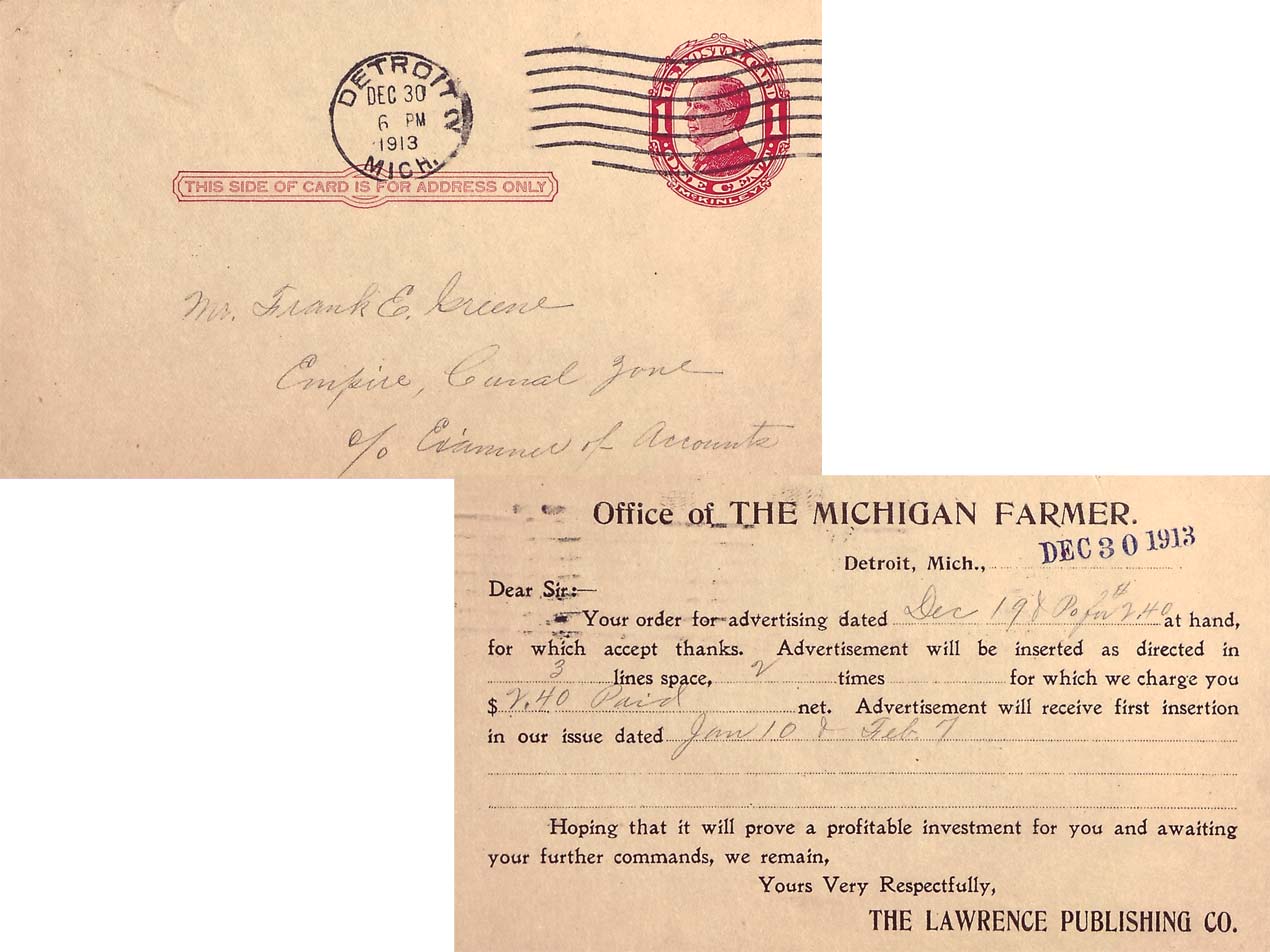 DETROIT 2
DEC 30
6 PM
1913
MICH.
U.S. POSTAL CARD
1 1
ONE CENT
McKINLEY
THIS SIDE OF CARD IS FOR ADDRESS ONLY
Mr. Frank E. Greene
Empire, Canal Zone
c/o Examiner of Accounts
Office of THE MICHIGAN FARMER.
Detroit, Mich., DEC 30 1913
Dear Sir:—
Your order for advertising dated Dec 19 & P.o. for 2.40 at hand,
for which accept thanks. Advertisement will be inserted as directed in
3 lines space, 2 times for which we charge you
$ 2.40 Paid net. Advertisement will receive first insertion
in our issue dated Jan 10 & Feb. 7
Hoping that it will prove a profitable investment for you and awaiting
your further commands, we remain,
Yours Very Respectfully,
THE LAWRENCE PUBLISHING CO.